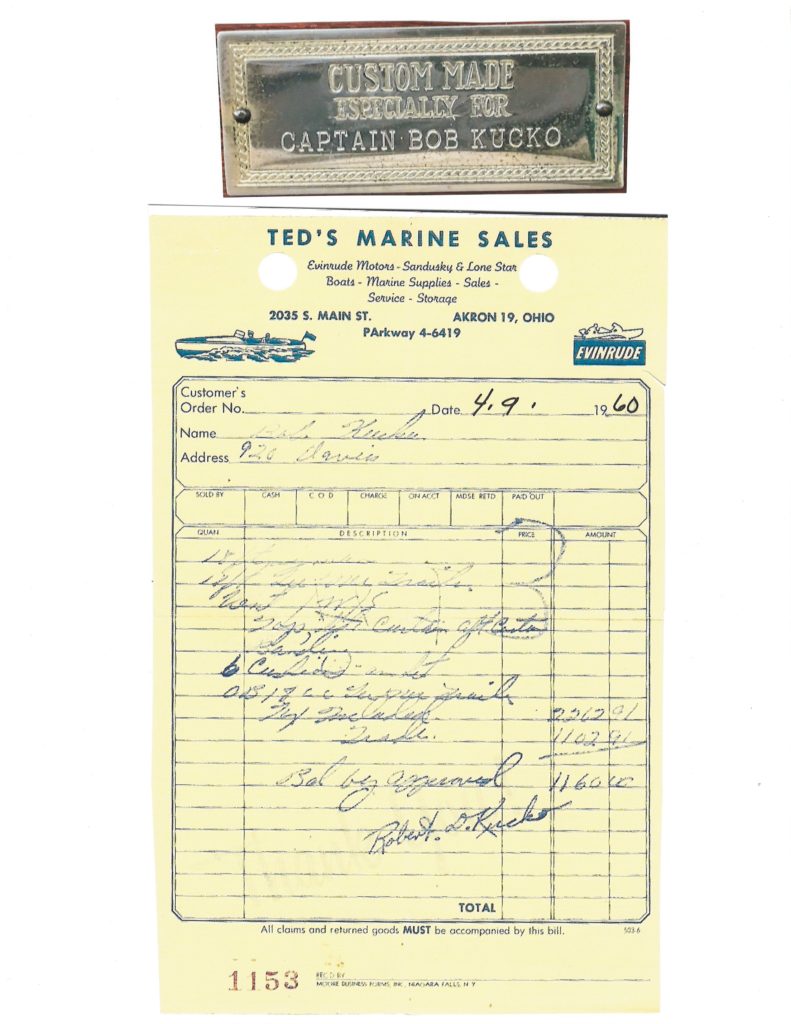 CUSTOM MADE
ESPECIALLY FOR
CAPTAIN BOB KUCKO
TED'S MARINE SALES
Evinrude Motors - Sandusky & Lone Star
Boats - Marine Supplies - Sales -
Service - Storage
2035 S. MAIN ST. AKRON 19, OHIO
PArkway 4-6419
EVINRUDE
Customer's
Order No. Date 4.9. 1960
Name Bob Kucko
Address 920 Davis
SOLD BY CASH C O D CHARGE ON ACCT MDSE RETD PAID OUT
QUAN. DESCRIPTION PRICE AMOUNT
Top Curtain aft Curtain
6 Cushions
Tax Included 2262 91
Trade. 1102 91
Bal by approval 1160 00
Robert D. Kucko
TOTAL
All claims and returned goods MUST be accompanied by this bill. 503-6
1153 REC'D BY
MOORE BUSINESS FORMS, INC., NIAGARA FALLS, N. Y.